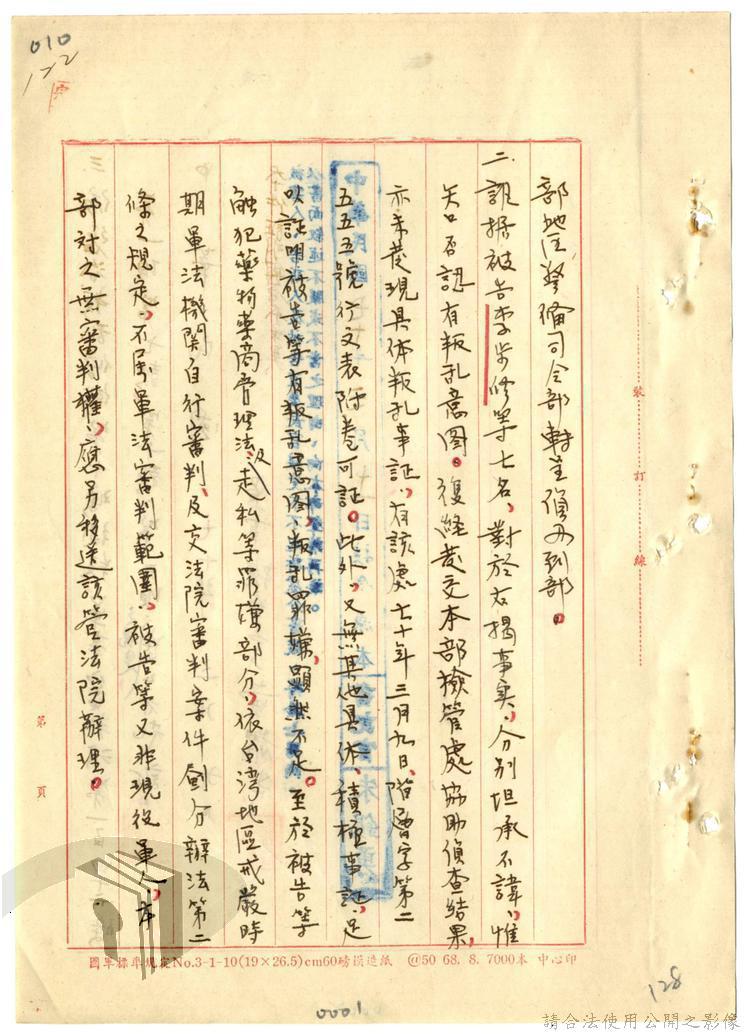 010
122
部地區警備司令部軒呈偵办到部。
二、訊据被告李步修等七名，對於右揭事实，分別坦承不諱，惟
矢口否認有叛乱意图。復経发交本部檢管處協助偵查結果，
亦未发現具体叛乱事証，有該處七十年三月九日，階層字第二
五五五號行文表附卷可証。此外，又無其他具体、積極事証，足
以証明被告等有叛乱意图，叛乱罪嫌，顯然不足。至於被告等
触犯藥物藥商管理法及走私等罪嫌部分，依台湾地區戒嚴時
期軍法機関自行審判及交法院審判案件劃分辦法第二
條之規定，不屬軍法審判範圍，被告等又非現役軍人，本
部对之無審判權，應另移送該管法院辦理。
裝訂線
第 頁
國軍標準規定No.3-1-10(19×26.5)cm60磅模造紙 @50 68. 8. 7000本 中心印
0001
128
請合法使用公開之影像